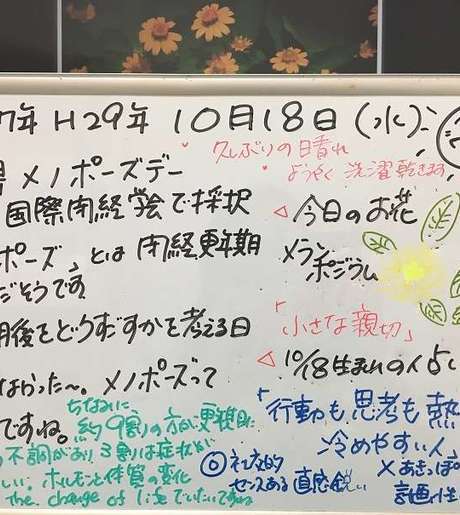 7年 H29年 10月18日(水)
・久しぶりの晴れ
・ようやく洗濯乾きます
メノポーズデー
国際閉経学会で採択
ポーズ」とは閉経更年期
だそうです
期後をどうすごすかを考える日
なかった～。メノポーズって
ですね。
ちなみに
約9割の方が更年期に
不調があり3割は症状が
しい。ホルモンと体質の変化
the change of life でいたいですね
◁今日のお花
メラン
ポジウム
「小さな親切」
◁10/18生まれの人占い
「行動も思考も熱
冷めやすい人
×あきっぽ
計画性
◎社交的
センスある 直感鋭い